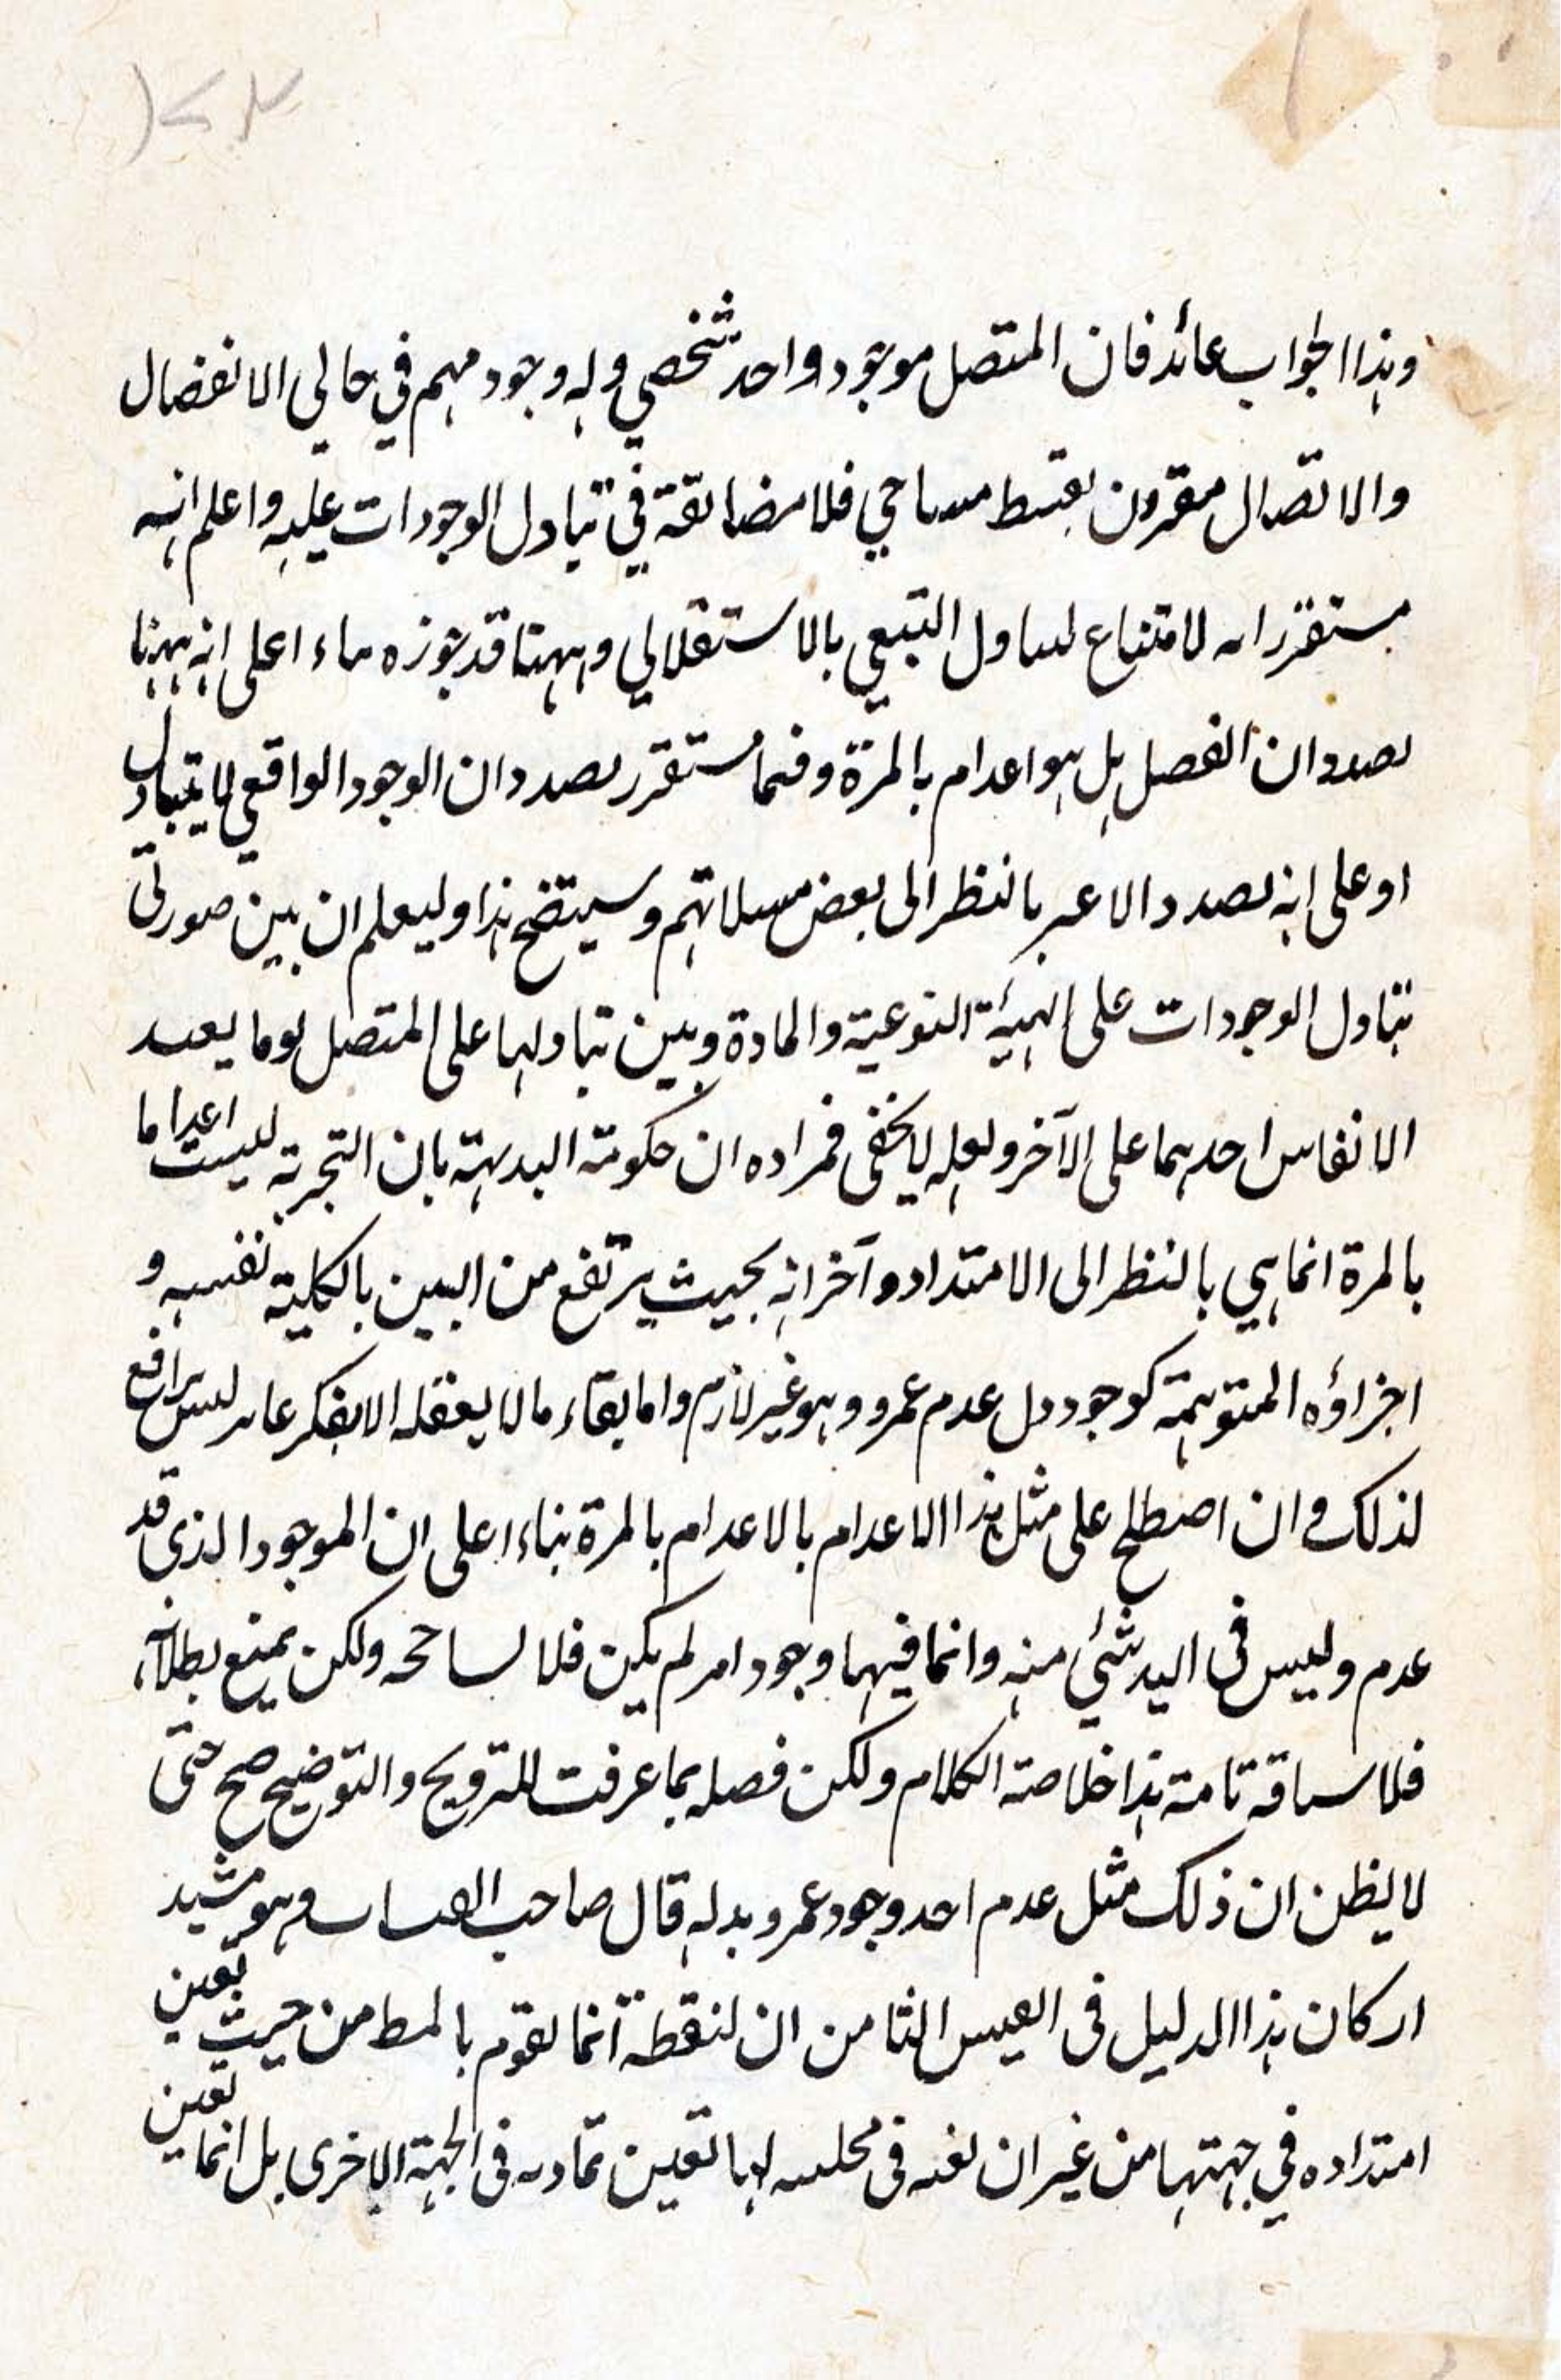 وهذا الجواب عائد فان المتصل موجود واحد شخصي وله وجود مبهم في حالي الانفصال
والاتصال مقرون بقسط مساحي فلا مضايقة في تبادل الوجودات عليه واعلم انه
لامتناع التبعي بالاستقلالي وههنا قد جوزه اعلى انه ههنا
ان الفصل بل هو اعدام بالمرة بصدد ان الوجود الواقعي لا يتبادل
او على انه بصدد بالنظر الى بعض وسيتضح هذا وليعلم ان بين صورتي
تبادل الوجودات على الهيئة النوعية والمادة وبين تبادلها على المتصل
احدهما على الآخر ولعله لا يخفى فمراده ان حكومة البديهة بان التجزية ليست اعداما
بالمرة انما هي بالنظر الى الامتداد وآخر انه بحيث يرتفع من البين بالكلية نفسه و
اجزاؤه المتوهمة كوجود عدم عمرو وهو غير لازم واما بقاء ما لا يعقله الا بفكر ليس برافع
لذلك وان اصطلح على مثل هذا الاعدام بالاعدام بالمرة بناءا على ان الموجود الذي قد
عدم وليس في اليد شئي منه وانما فيها وجود امر لم يكن فلا ولكن يمنع بطلانه
فلا تامة هذا خلاصة الكلام ولكن فصله بما عرفت للترويج والتوضيح صح حتى
لا يظن ان ذلك مثل عدم احد وجود عمرو بدله قال صاحب وهو مشيد
اركان هذا الدليل في القبس الثامن ان لنقطة انما تقوم بالخط من حيث تعين
امتداده في جهتها من غير ان لها تعين تماديه في الجهة الاخرى بل انما تعين